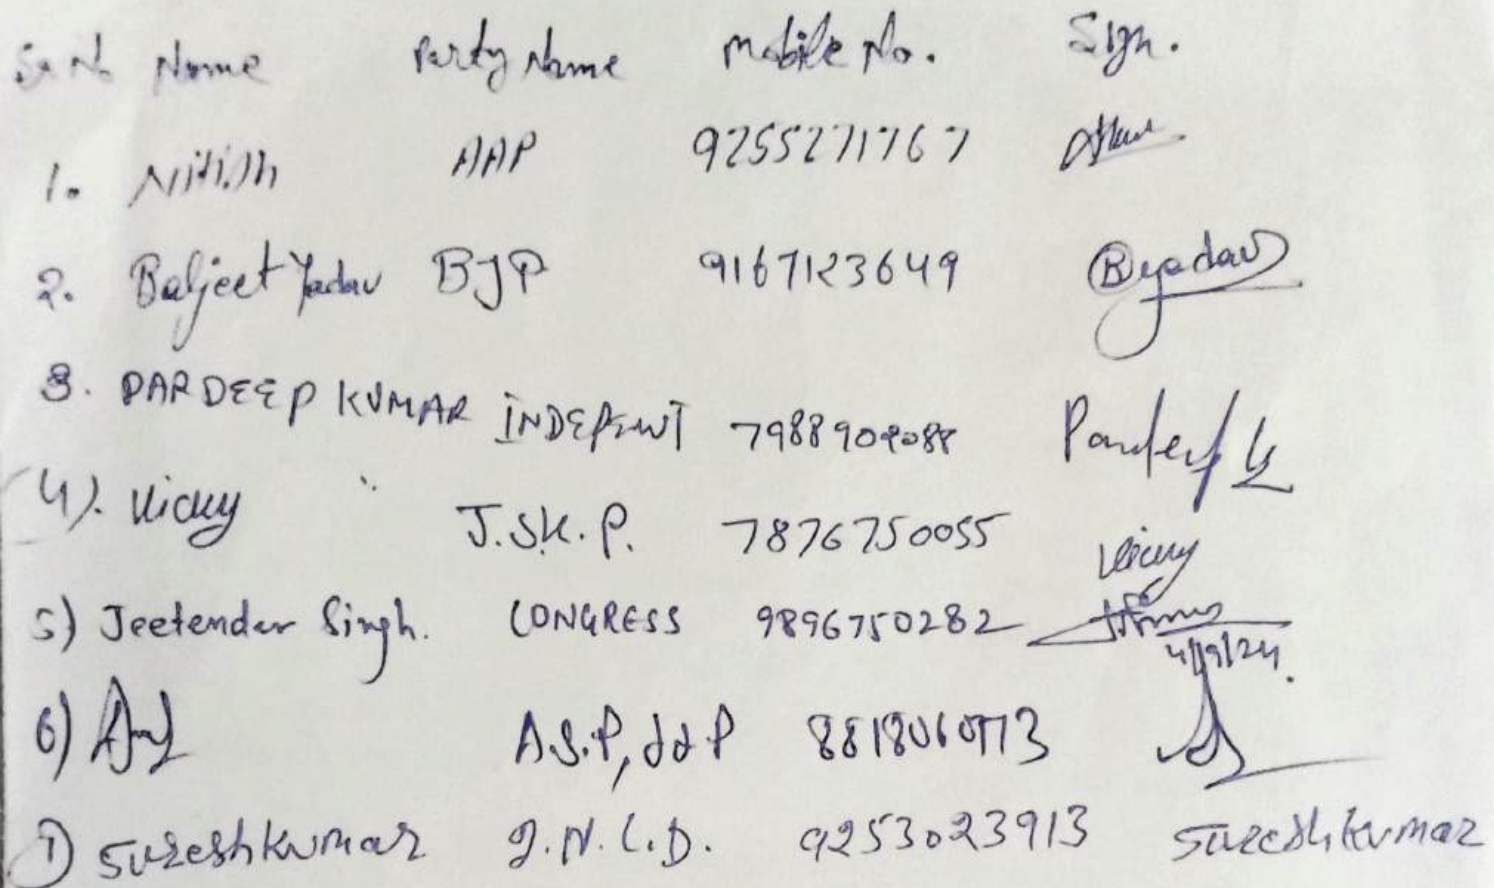 Sr No Name Party Name Mobile No. Sign.
1. Nitish AAP 9255271767
2. Baljeet Yadav BJP 9167123649 Byadav
3. PARDEEP KUMAR INDEPENT 7988909088 Pardeep K
4). Vicky J.S.K.P. 7876750055 Vicky
5) Jeetender Singh. CONGRESS 9896750282
4/9/24.
6) A.S.P, JJP
7) Sureshkumar I.N.L.D. 9253023913 Sureshkumar